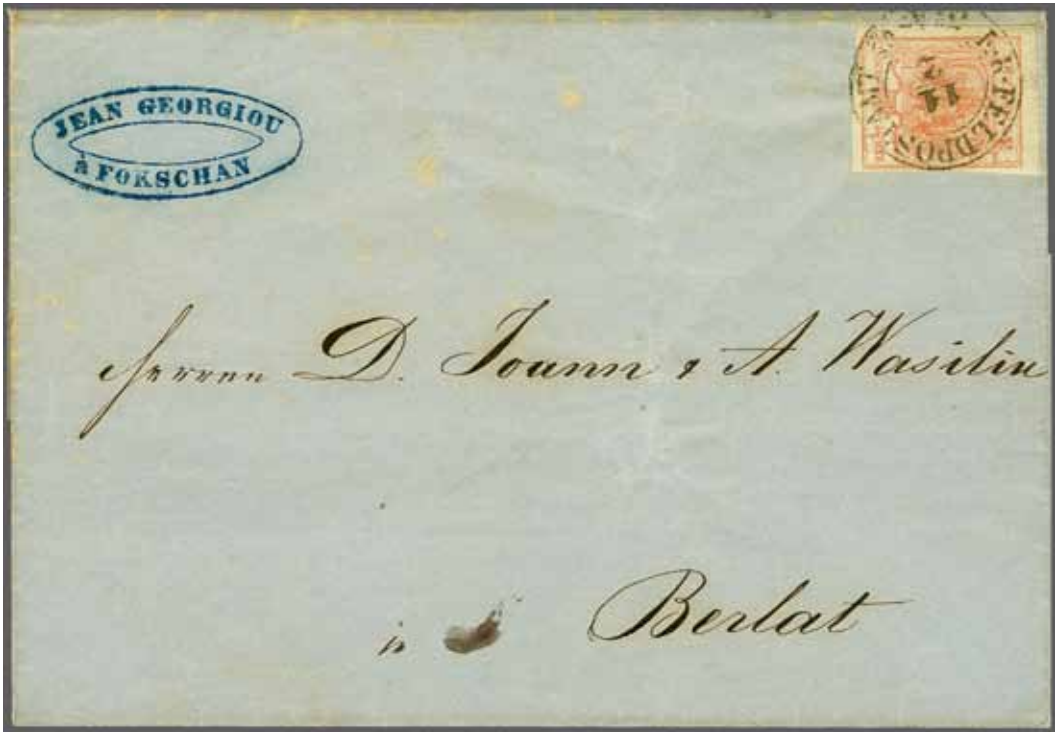 JEAN GEORGIOU
à FOKSCHAN
K.K. FELDPOSTAMT
11
3
Herren D. Joann & A. Wasiliu
in Berlat